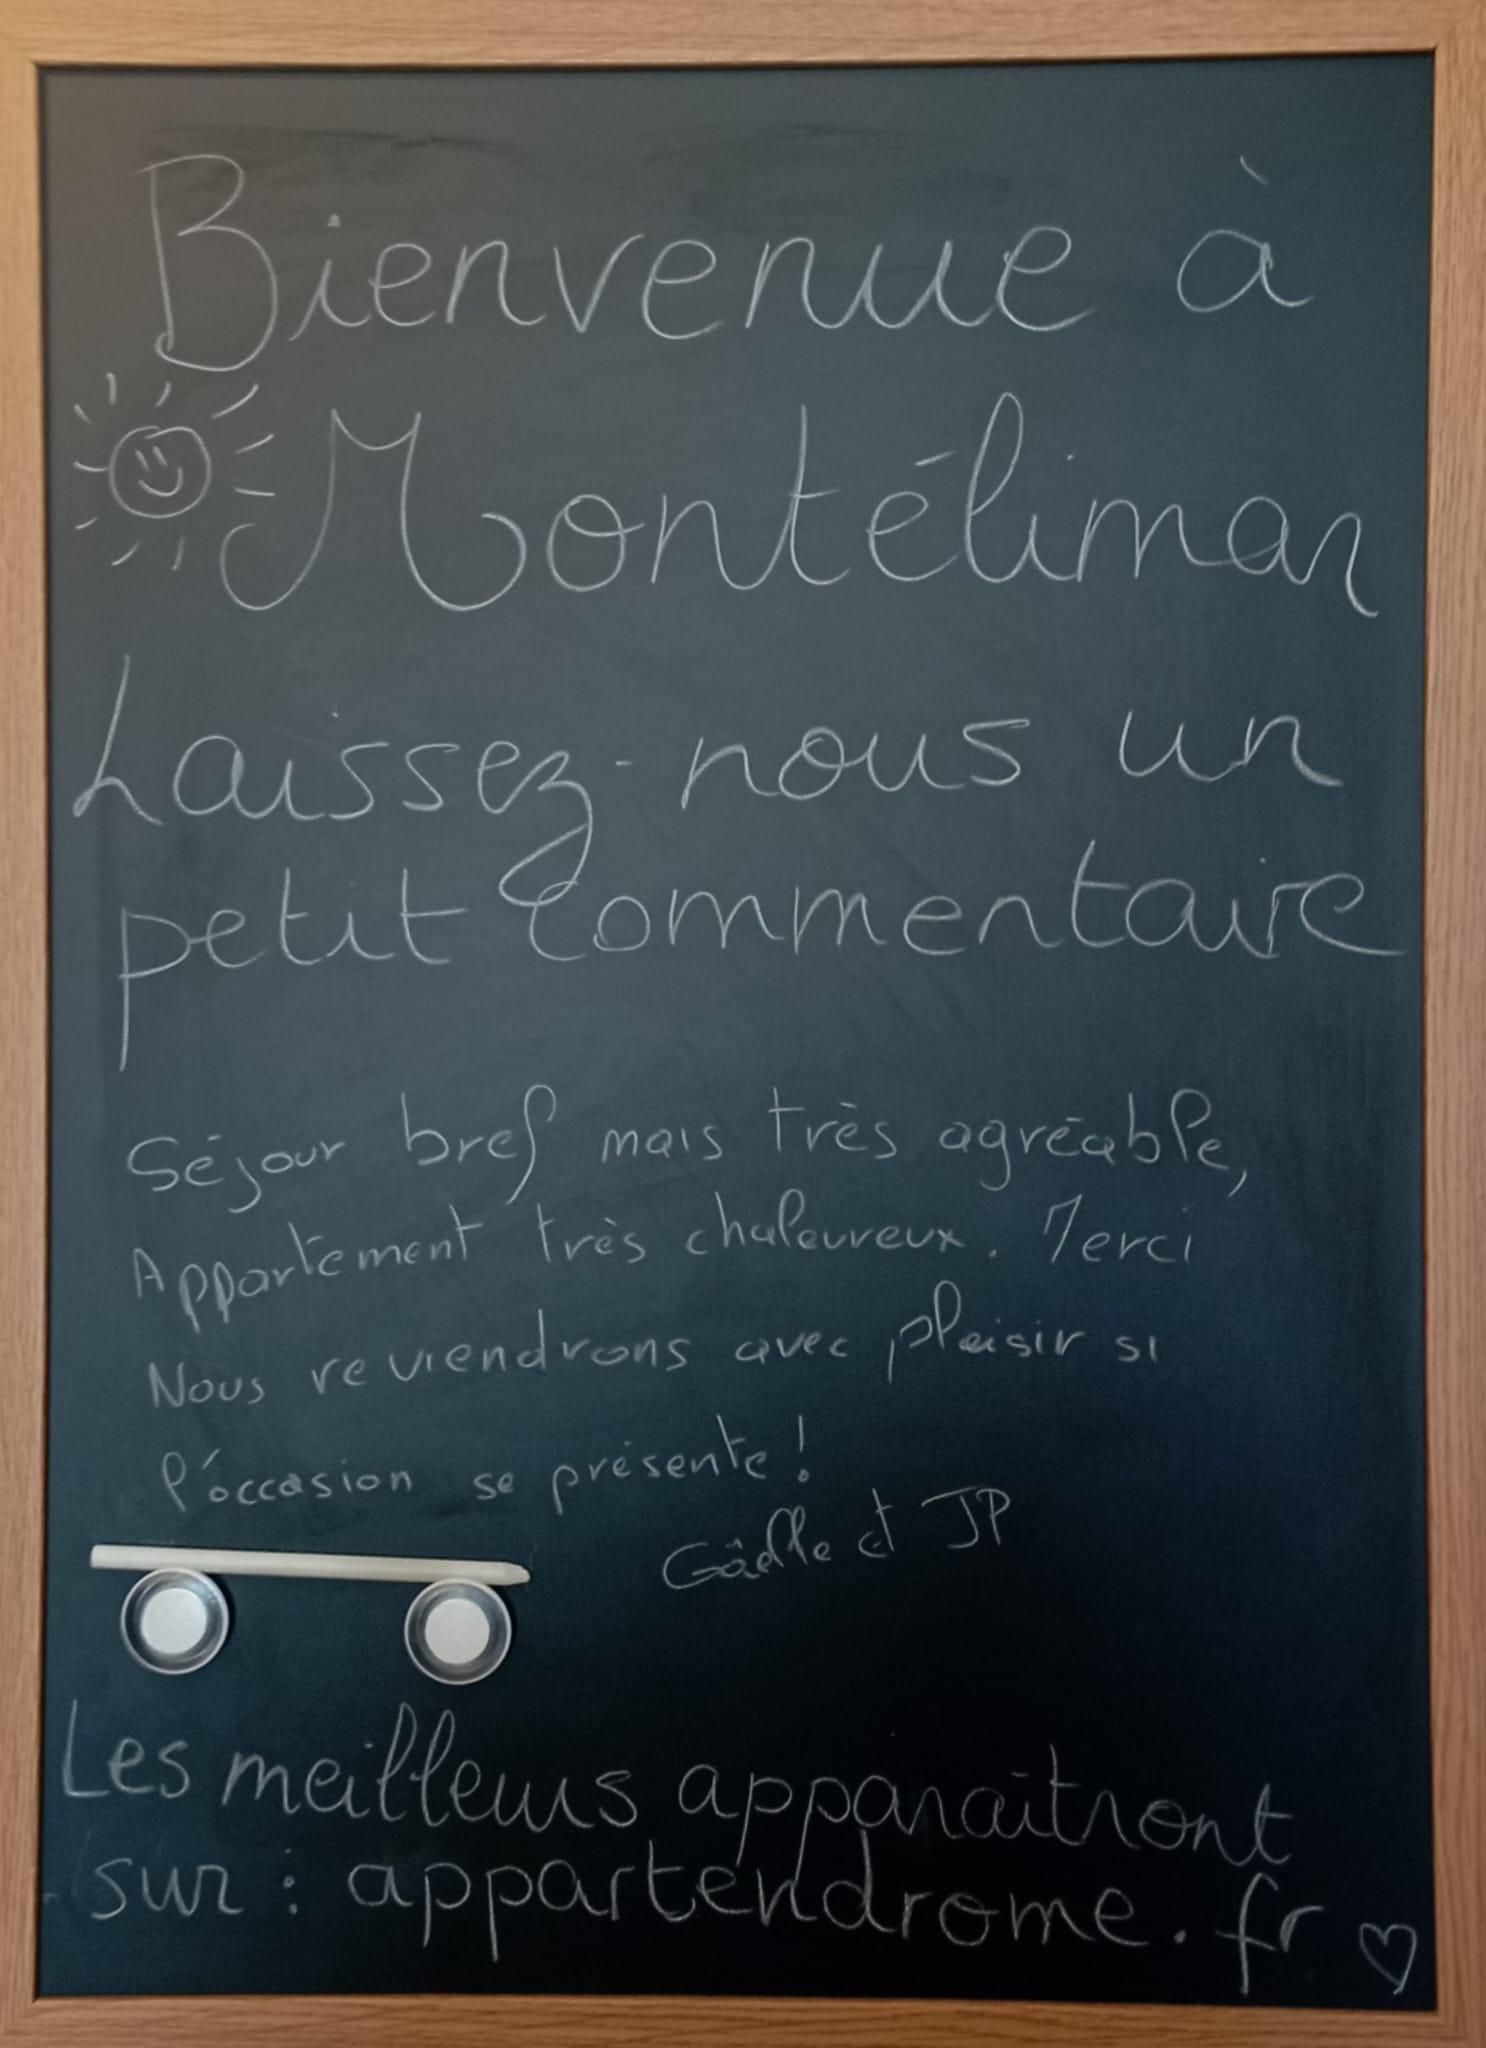 Bienvenue à
Montélimar
Laissez-nous un
petit commentaire
Séjour bref mais très agréable,
Appartement très chaleureux. Merci
Nous reviendrons avec plaisir si
l'occasion se présente!
Gaëlle et JP
Les meilleurs apparaîtront
sur : appartendrome.fr